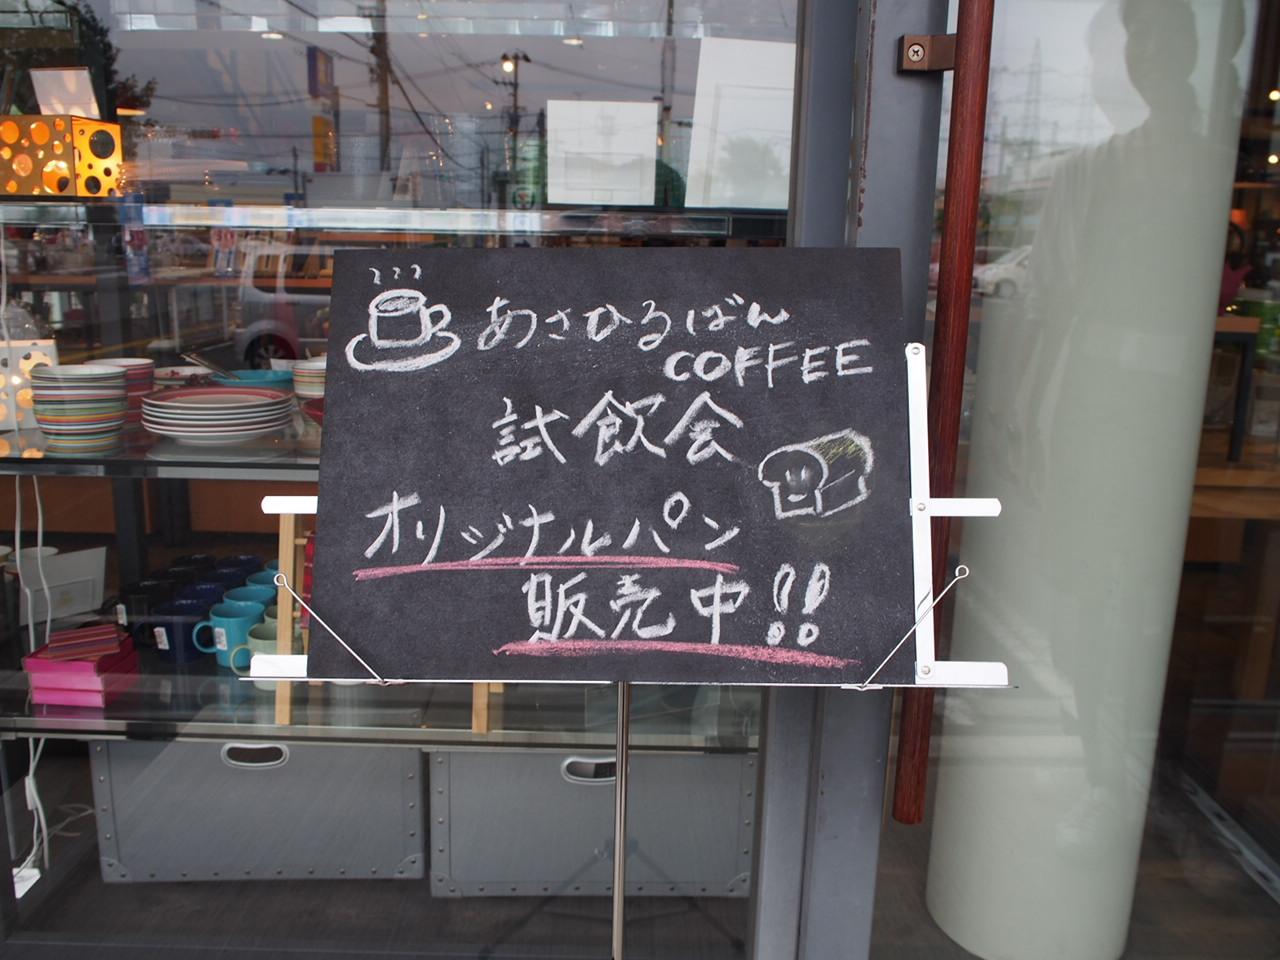 あさひるばん
COFFEE
試飲会
オリジナルパン
販売中!!